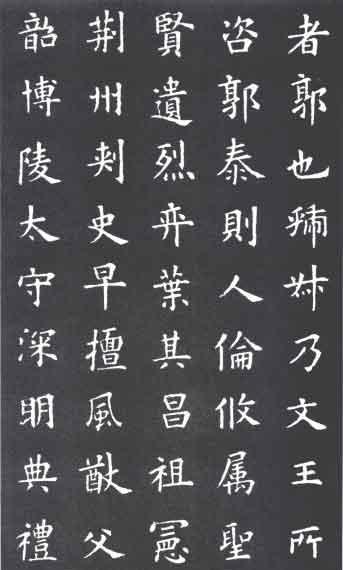 者郭也虢叔乃文王所
咨郭泰則人倫攸属聖
賢遺烈弈葉其昌祖憲
荆州刾史早擅風猷父
韶博陵太守深明典禮